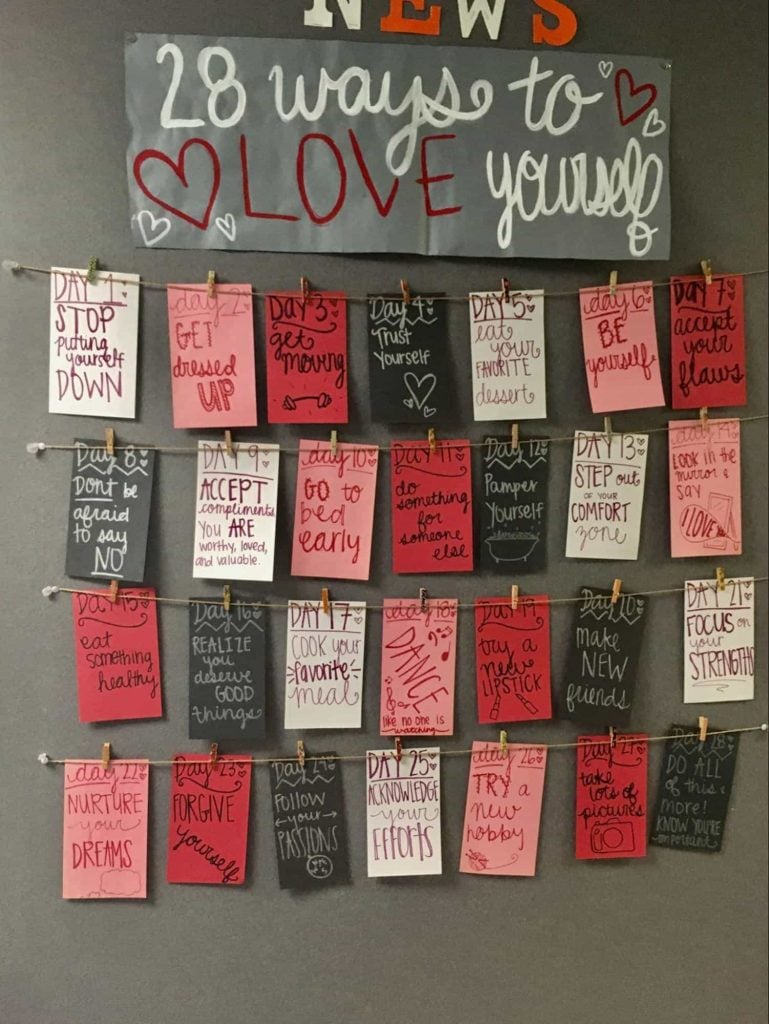 NEWS
28 ways to
LOVE yourself
DAY 1
STOP
putting
yourself
DOWN
day 2
GET
dressed
UP
DAY 3
get
moving
Day 4
Trust
Yourself
DAY 5
eat
your
FAVORITE
dessert
day 6
BE
yourself
DAY 7
accept
your
flaws
Day 8
DONT be
afraid
to say
NO
DAY 9
ACCEPT
compliments
YOU ARE
worthy, loved,
and valuable.
day 10
GO to
bed
early
DAY 11
do
something
for
someone
else
Day 12
Pamper
Yourself
DAY 13
STEP out
OF YOUR
COMFORT
zone
day 14
LOOK in the
mirror &
say
I LOVE
DAY 15
eat
something
healthy
Day 16
REALIZE
you
deserve
GOOD
things
DAY 17
COOK your
favorite
meal
day 18
DANCE
like no one is
watching
DAY 19
try a
new
LIPSTICK
Day 20
make
NEW
friends
DAY 21
FOCUS on
your
STRENGTHS
day 22
NURTURE
your
DREAMS
DAY 23
FORGIVE
yourself
Day 24
FOLLOW
your
PASSIONS
DAY 25
ACKNOWLEDGE
your
EFFORTS
day 26
TRY a
new
hobby
DAY 27
take
lots of
pictures
Day 28
DO ALL
of this &
more!
KNOW YOU'RE
important